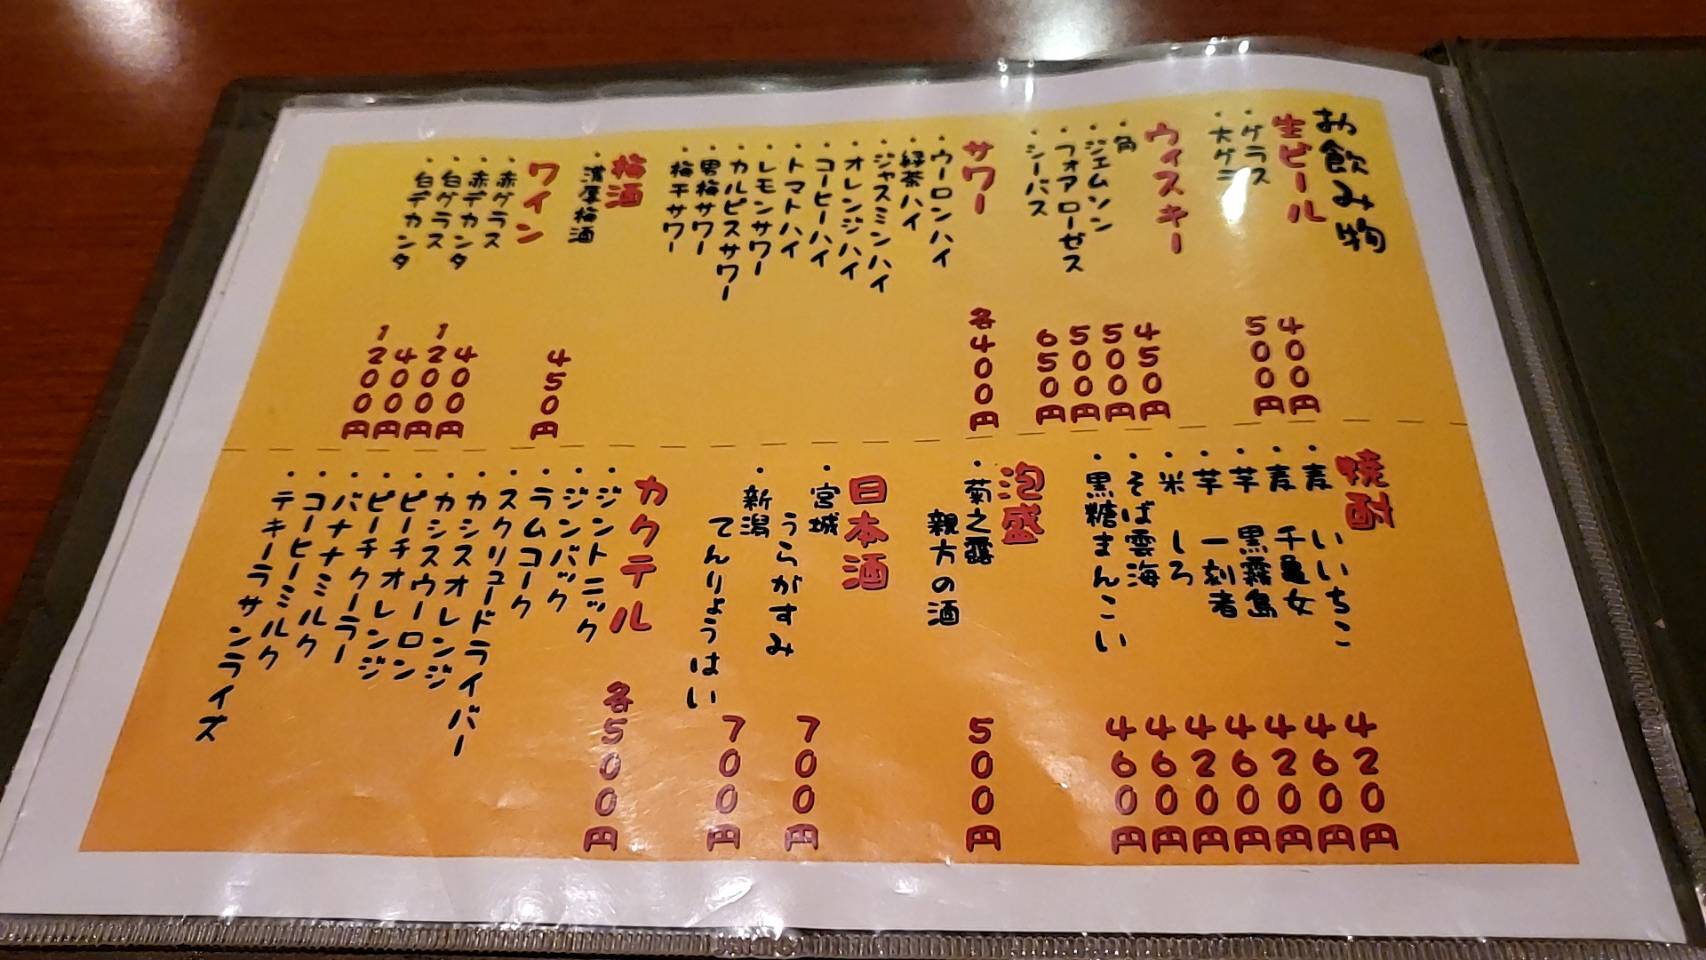 お飲み物
生ビール
・グラス 400円
・大グラ 500円
ウィスキー
・角 450円
・ジェムソン 500円
・フォアローゼス 500円
・シーバス 650円
サワー 各400円
・ウーロンハイ
・緑茶ハイ
・ジャスミンハイ
・オレンジハイ
・コーヒーハイ
・トマトハイ
・レモンサワー
・カルピスサワー
・男梅サワー
・梅干サワー
梅酒
・濃厚梅酒 450円
ワイン
・赤グラス 400円
・赤デカンタ 1200円
・白グラス 400円
・白デカンタ 1200円
焼酎
・麦 いいちこ 420円
・麦 千亀女 460円
・芋 黒霧島 420円
・芋 一刻者 460円
・米 しろ 420円
・そば雲海 460円
・黒糖まんこい 460円
泡盛
・菊之露
親方の酒 500円
日本酒
・宮城
うらがすみ 700円
・新潟
てんりょうはい 700円
カクテル 各500円
・ジントニック
・ジンバック
・ラムコーク
・スクリュードライバー
・カシスオレンジ
・カシスウーロン
・ピーチオレンジ
・ピーチクーラー
・バナナミルク
・コーヒーミルク
・テキーラサンライズ